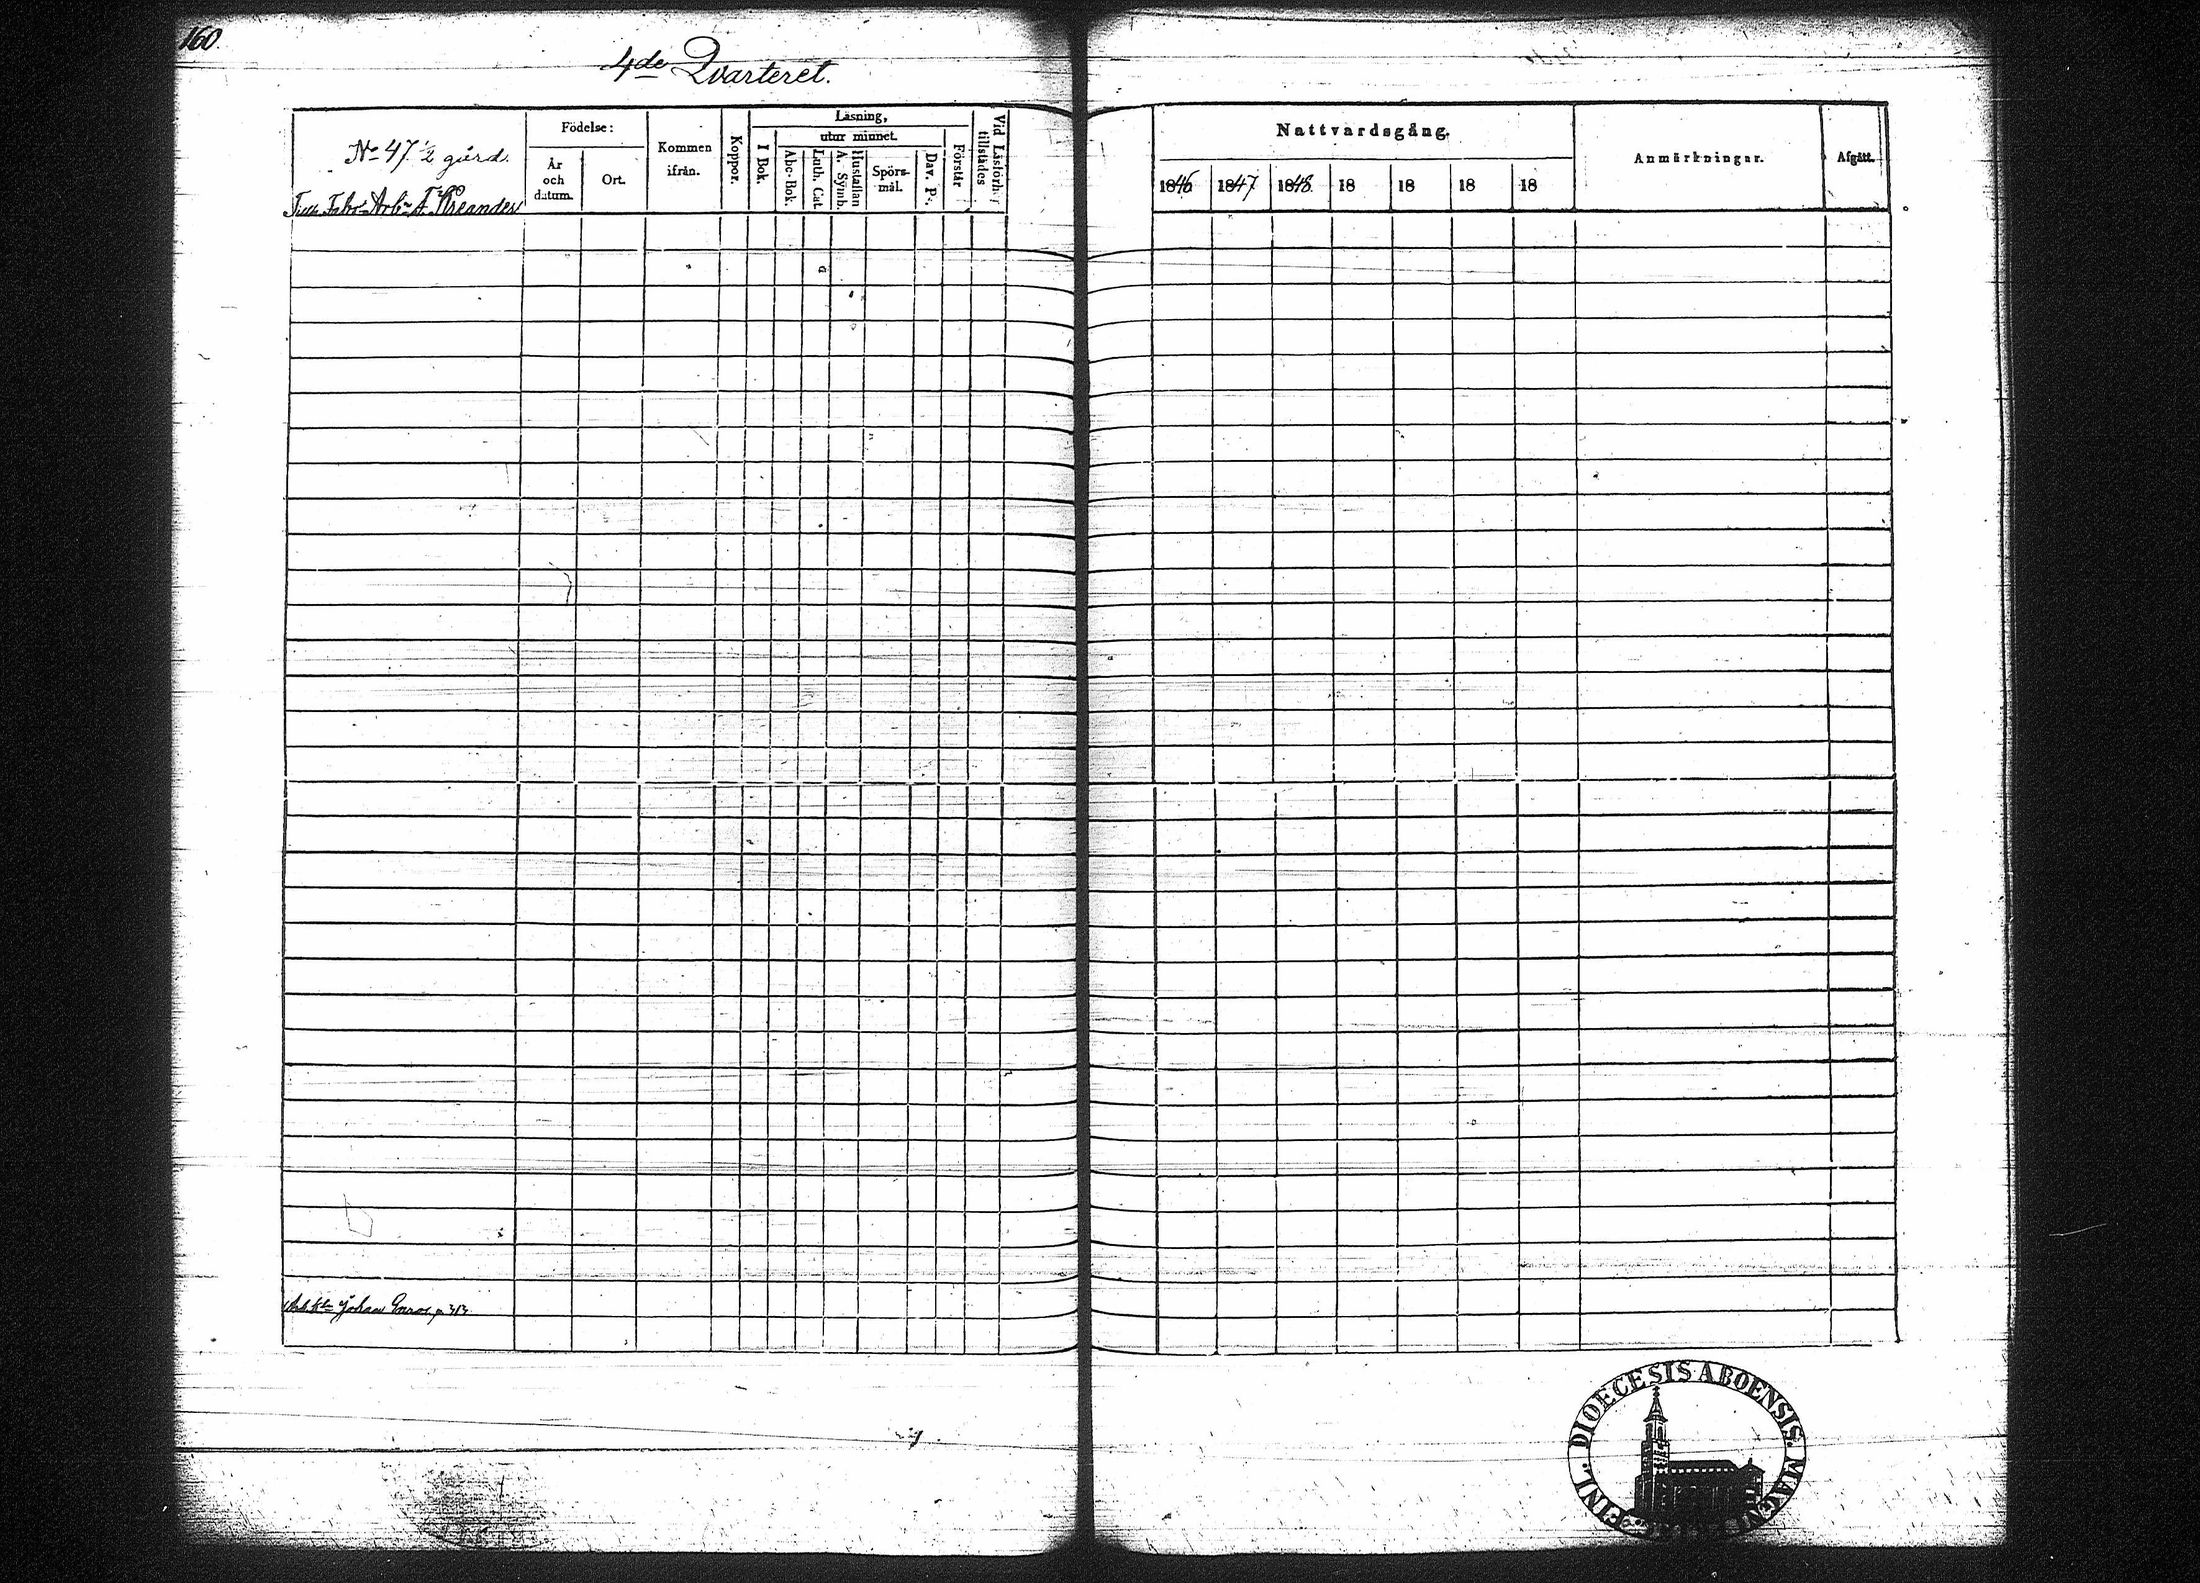 160.
4de Qvarteret.
No 47. 1/2 gård.
Fabr. Arbn
Födelse:
År och datum.
Ort.
Kommen ifrån.
Koppor.
Läsning,
I Bok.
utur minnet.
Abc-Bok.
Luth. Cat.
Hustaflan A. Symb.
Spörs-mål.
Dav. Ps.
Förstår
Vid Läsförh. tillstädes
Nattvardsgång.
1846 1847 1848. 18 18 18 18
Anmärkningar.
Afgått.
Johan p 313
DIOECESIS ABOENSIS. MAGNI